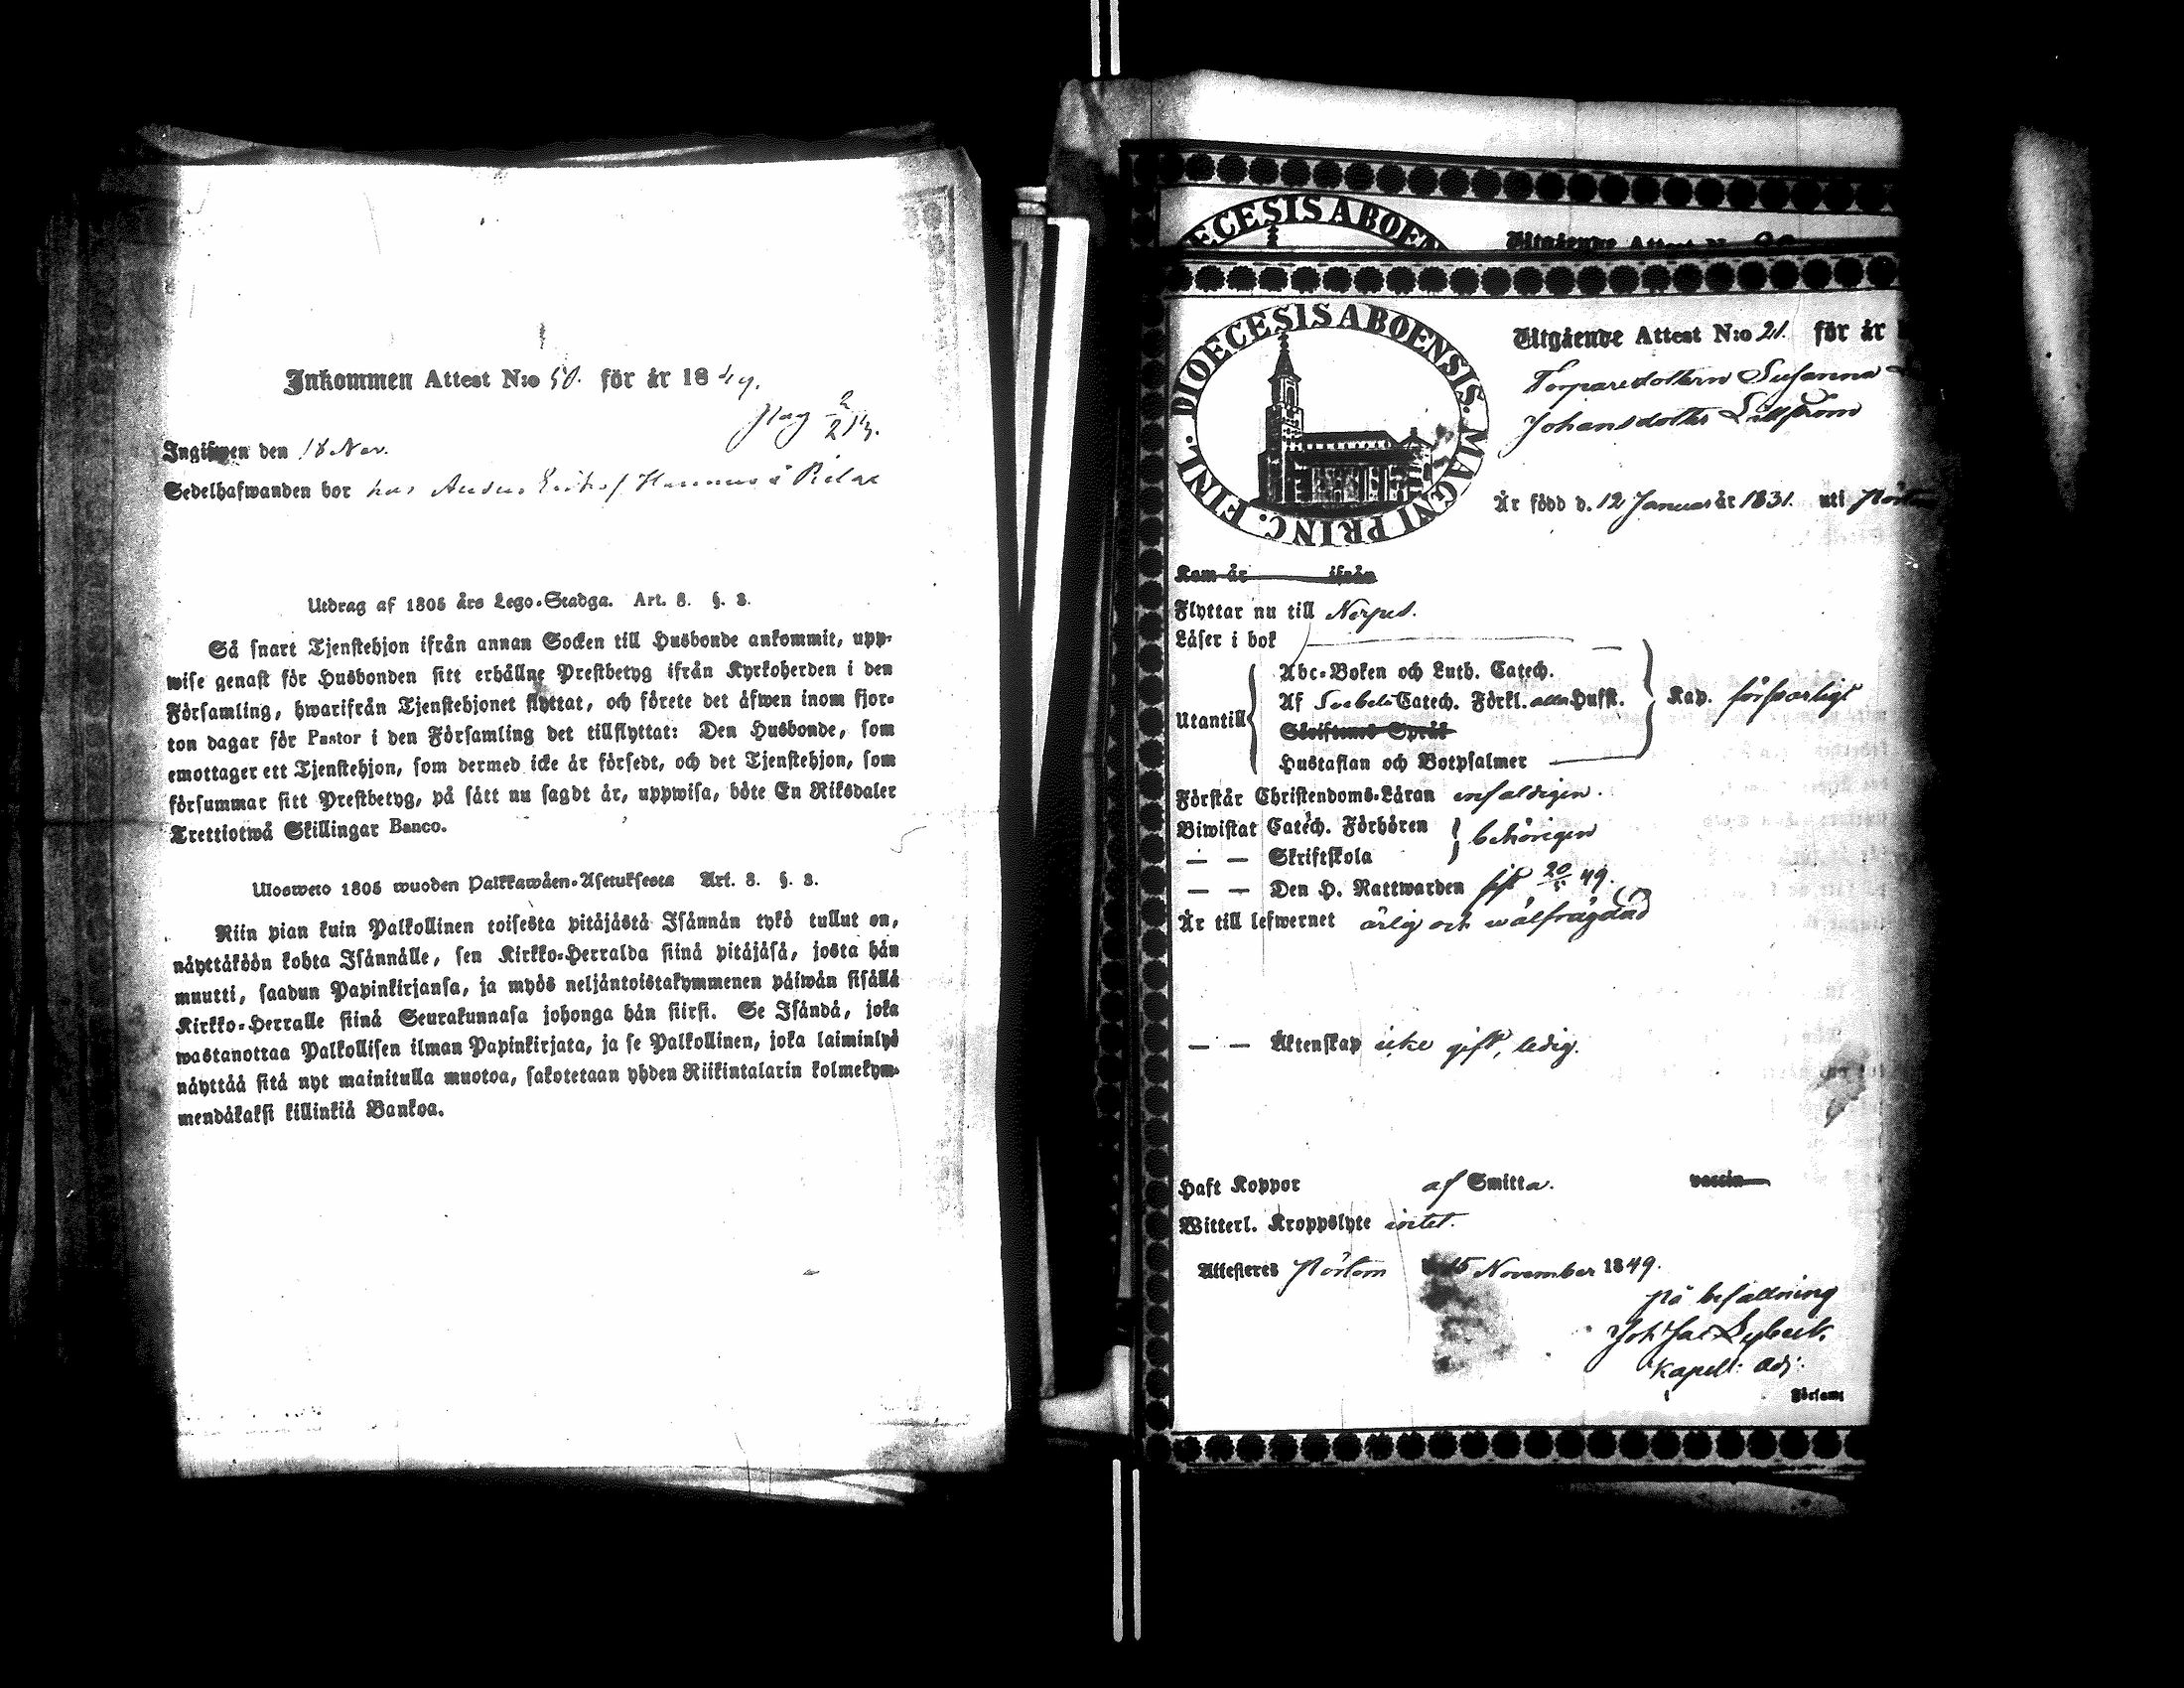 Inkommen Attest N:o 50. för år 1849.
Pag 2/213.
Ingifwen den 18 Nov.
Sedelhafwanden bor hos Anders å
Utdrag af 1805 års Lego-Stadga. Art. 8. §. 3.
Så snart Tjenstehjon ifrån annan Socken till Husbonde ankommit, upp-
wise genast för Husbonden sitt erhållne Prestbetyg ifrån Kyrkoherden i den
Församling, hwarifrån Tjenstehjonet flyttat, och förete det äfwen inom fjor-
ton dagar för Pastor i den Församling det tillflyttat: Den Husbonde, som
emottager ett Tjenstehjon, som dermed icke är försedt, och det Tjenstehjon, som
försummar sitt Prestbetyg, på sätt nu sagdt är, uppwisa, böte En Riksdaler
Trettiotwå Skillingar Banco.
Uloswето 1805 wuoden Palkkawäen-Asetuksesta Art. 8. §. 3.
Niin pian kuin Palkollinen toisesta pitäjästä Isännän tykö tullut on,
näyttäköön kohta Isännälle, sen Kirkko-Herralda siinä pitäjäsä, josta hän
muutti, saadun Papinkirjansa, ja myös neljäntoistakymmenen päiwän sisällä
Kirkko-Herralle siinä Seurakunnasa johonga hän siirsi. Se Isändä, joka
wastanottaa Palkollisen ilman Papinkirjata, ja se Palkollinen, joka laiminlyö
näyttää sitä nyt mainitulla muotoa, sakotetaan yhden Riikintalarin kolmekym-
mendäkaksi killinkiä Bankoa.
ECESIS ABOEN
Utgående Attest N:o
DIOECESIS ABOENSIS. MAGNI PRINC. FINL.
Utgående Attest N:o 21. för år
Torparedottern Susanna
Johansdotter Lillström
Är född d. 12 Januari år 1831. uti
Kom år ifrån
Flyttar nu till Nerpes.
Läser i bok
Utantill
Abc-Boken och Luth. Catech.
Af Svebeli Catech. Förkl. Hufst.
Skriftenes Språk
Hustaflan och Botpsalmer
Kap. försvarligt
Förstår Christendoms-Läran enfaldigen.
Biwistat Catech. Förhören
— — Skriftskola
behörigen
— — Den H. Nattwarden sist 20/5 49.
Är till lefwernet ärlig och wälfrägdad
— — Äktenskap icke gift, ledig.
Haft Koppor af Smitta. vaccin
Witterl. Kroppslyte intet.
Attesteras Pörtom d. 15 November 1849.
på befallning
Joh Jac Sybeck
Kapell: Adj:
i Församl